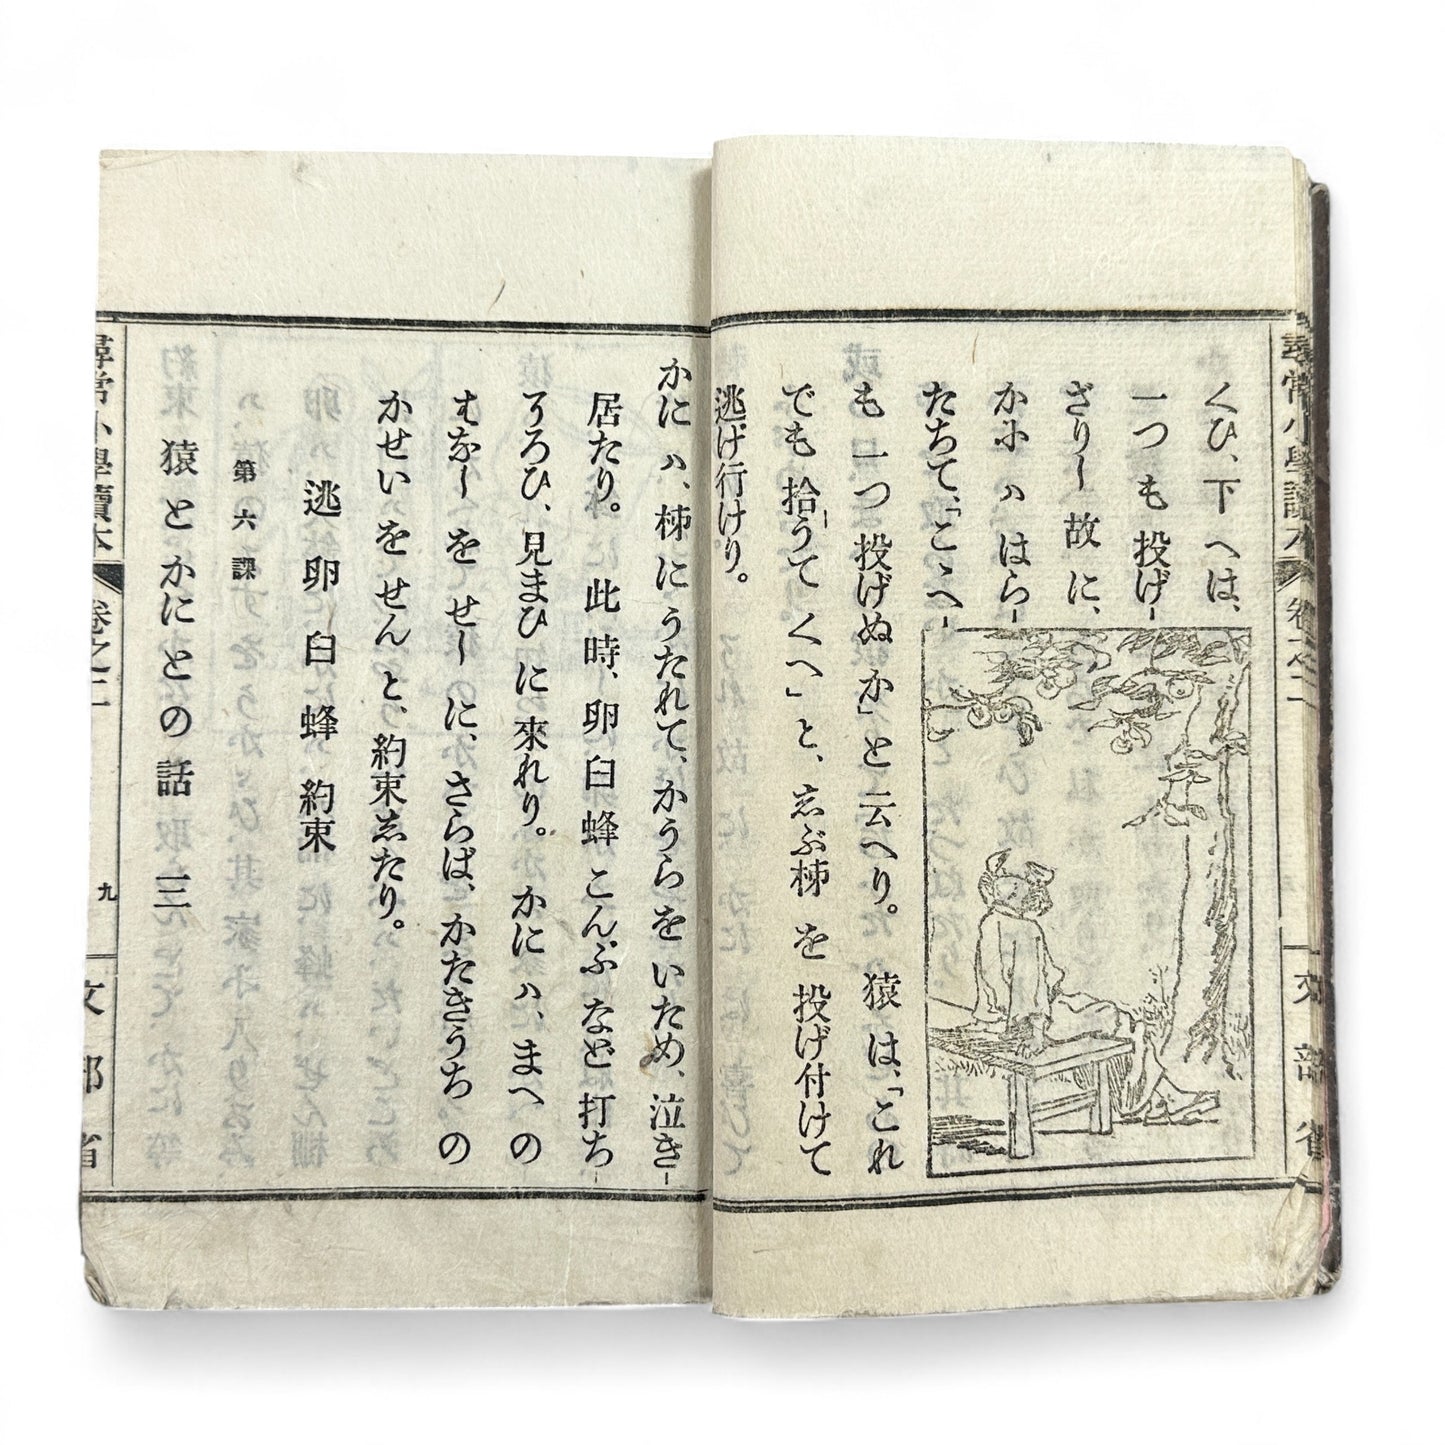 くひ、下へは、
一つも投げ
ざりし故に、
かには、はら
たちて、「こゝへ
も一つ投げぬか」と云へり。猿は、「これ
でも拾うてくへ」と、志ぶ柹を投げ付けて
逃げ行けり。
かにハ、柹にうたれて、かうらをいため、泣き
居たり。此時、卵臼蜂こんぶなど打ち
そろひ、見まひに來れり。かにハ、まへの
はなしをせしに、さらば、かたきうちの
かせいをせんと、約束志たり。
逃 卵 臼 蜂 約束
第六課
猿とかにとの話 三
尋常小學讀本
卷之二
九
文部省
尋常小學讀本
卷之二
文部省